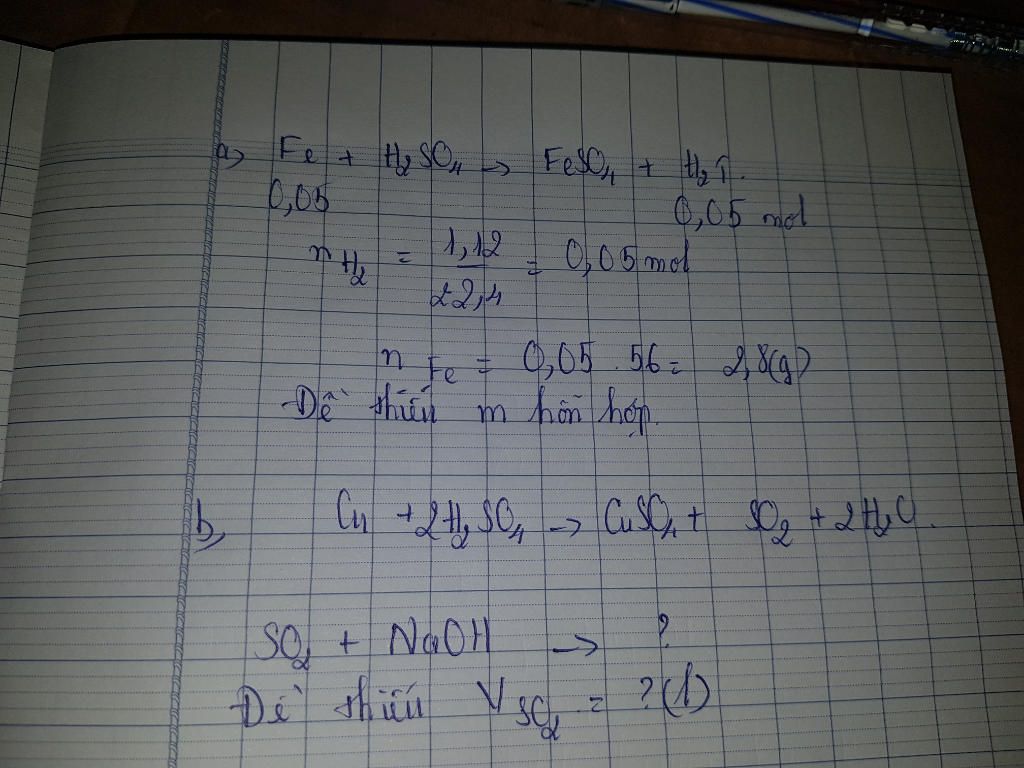 a) Fe + H₂SO₄ → FeSO₄ + H₂↑.
0,05 0,05 mol
n H₂ = 1,12 / 22,4 = 0,05 mol
n Fe = 0,05 . 56 = 2,8(g)
Đề thiếu m hỗn hợp.
b, Cu + 2H₂SO₄ → CuSO₄ + SO₂ + 2H₂O.
SO₂ + NaOH → ?
Đề thiếu V SO₂ = ? (l)